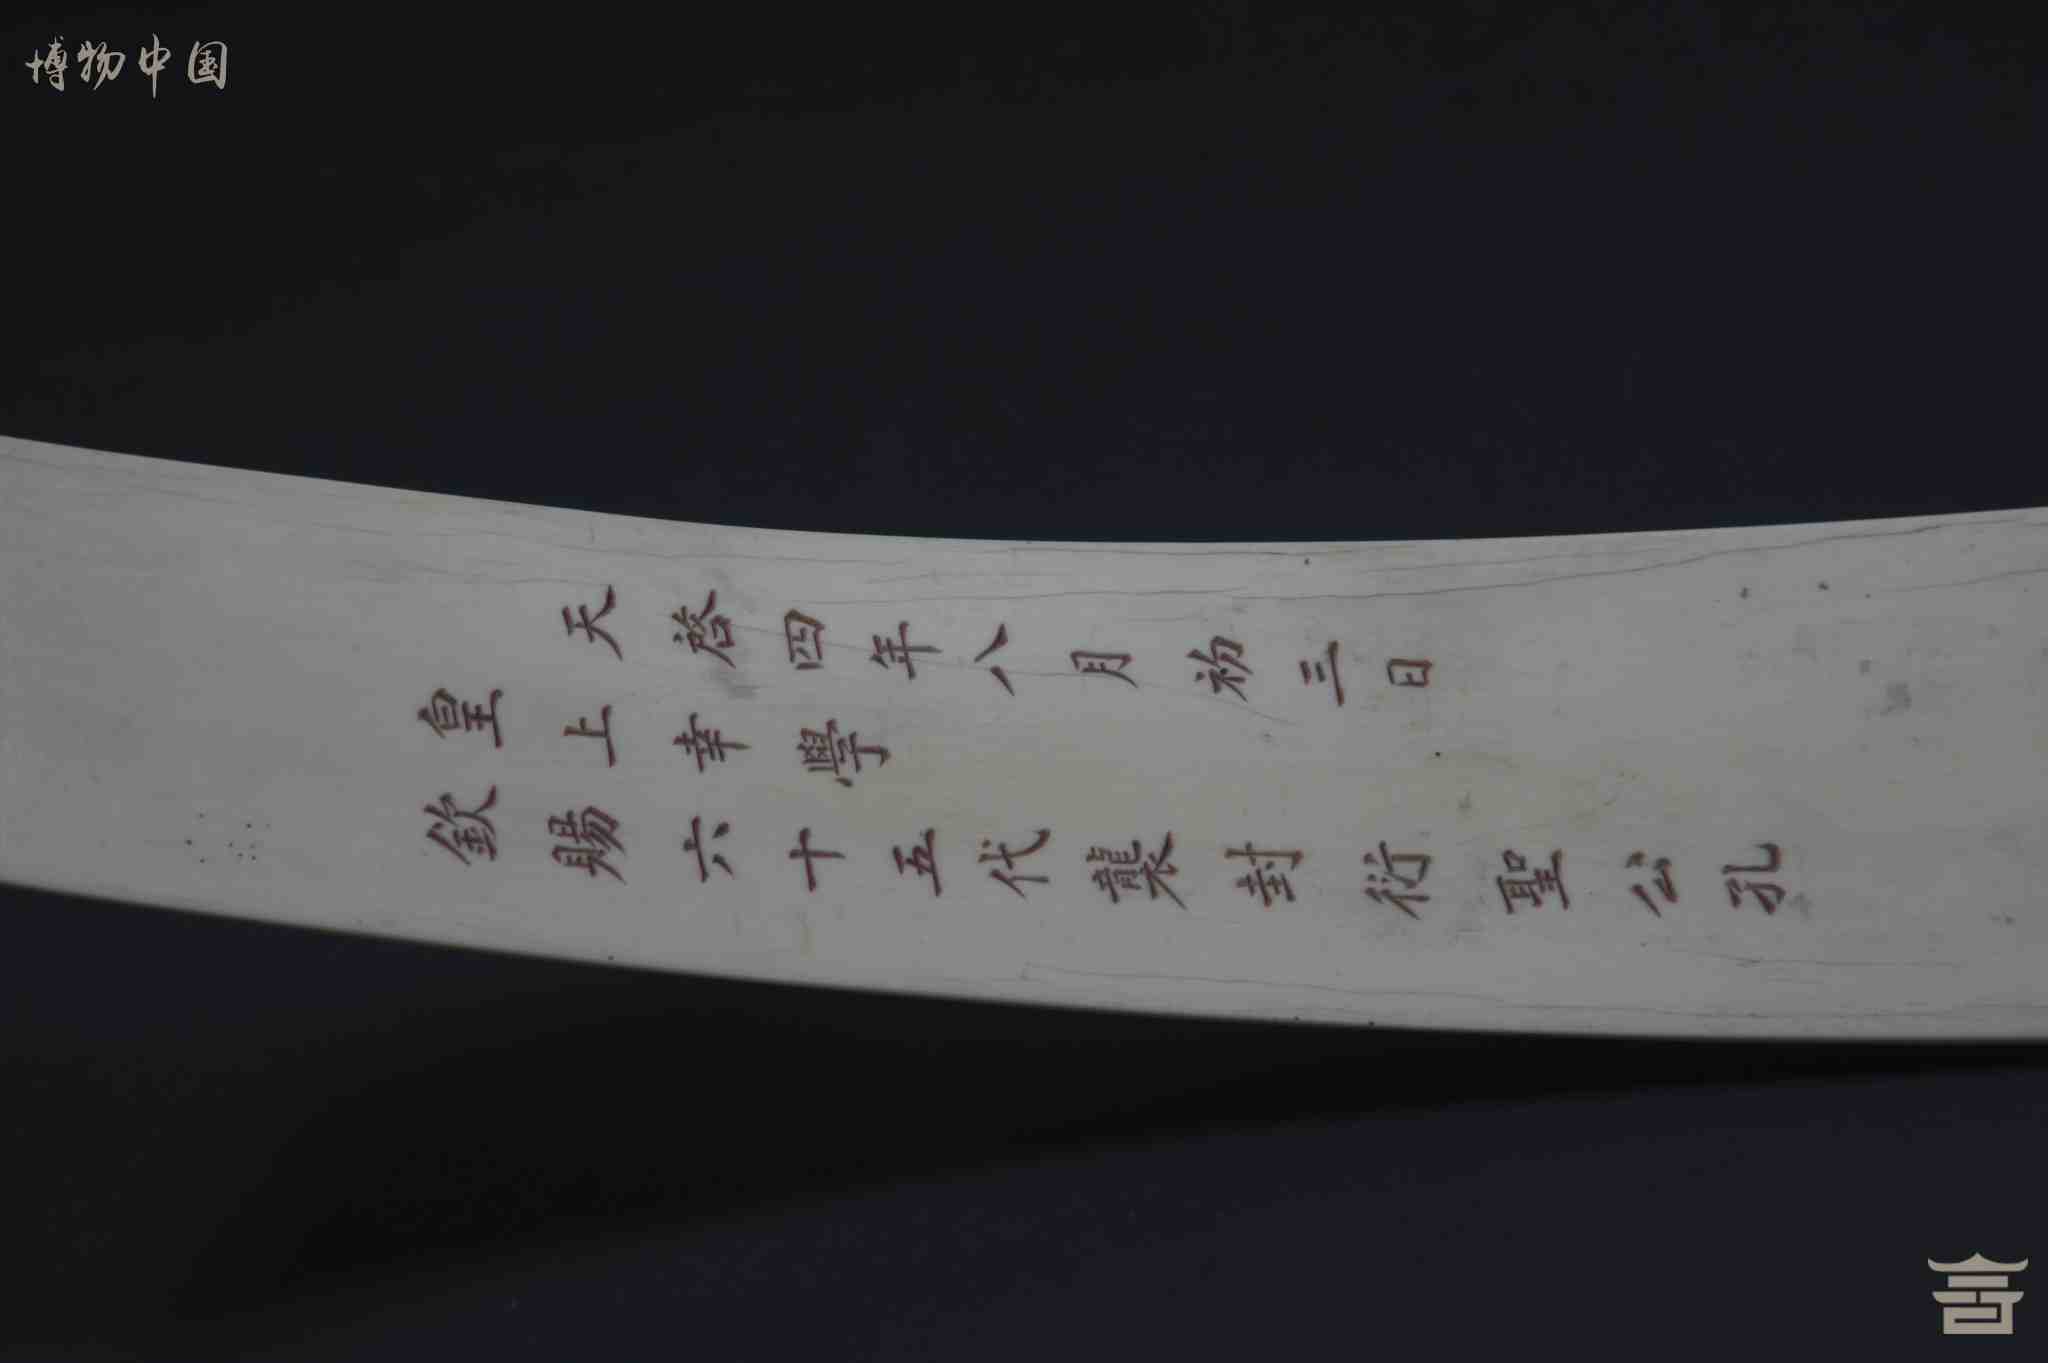 博物中国
天啓四年八月初三日
皇上幸學
欽賜六十五代襲封衍聖公孔